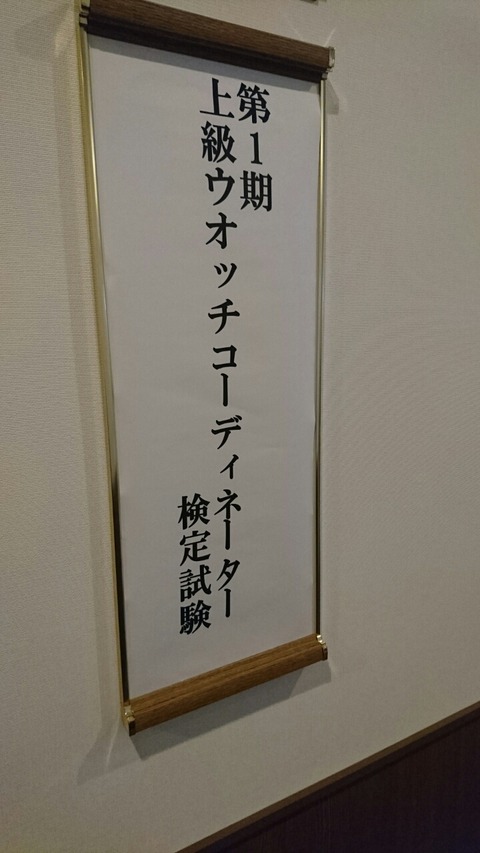 第1期
上級ウオッチコーディネーター
検定試験